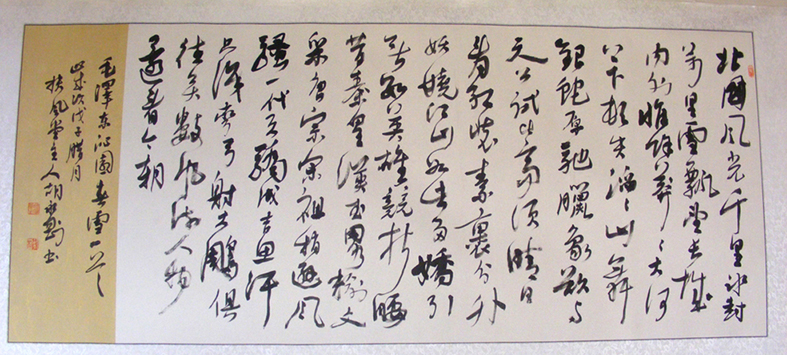 北國风光千里冰封
万里雪飘望长城
内外惟馀莽〻大河
上下顿失滔〻山舞
銀蛇原驰臘象欲与
天公试比高须晴日
看红妆素裹分外
妖娆江山如此多嬌引
无数英雄競折腰
昔秦皇漢武略输文
采唐宗宋祖稍逊风
骚一代天驕成吉思汗
只识弯弓射大鵰俱
往矣數风流人物
还看今朝
毛澤东沁園春雪一首
歲次戊子腊月
扶风堂主人胡书